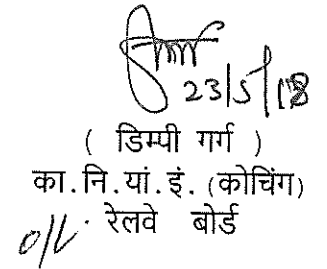 23/5/18
( डिम्पी गर्ग )
का.नि.यां.इं. (कोचिंग)
रेलवे बोर्ड